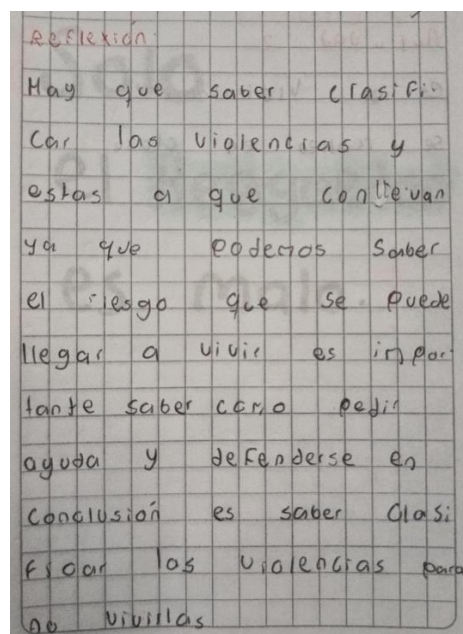 Reflexión:
Hay que saber clasifi-
car las violencias y
estas a que conllevan
ya que podemos saber
el riesgo que se puede
llegar a vivir es inpor
tante saber como pedir
ayuda y defenderse en
conclusión es saber clasi
ficar las violencias para
no vivirlas